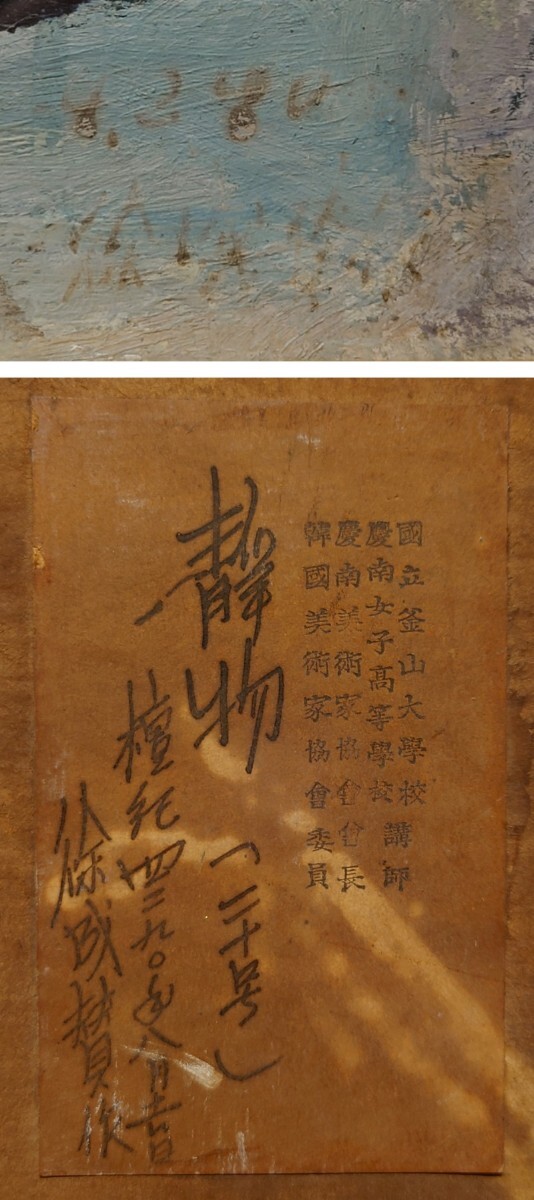 4290
國立釜山大學校
慶南女子高等學校
講師
慶南美術家協會會長
韓國美術家協會委員
静物
(二十号)
檀紀四二九〇年八月吉日
徐成賛作